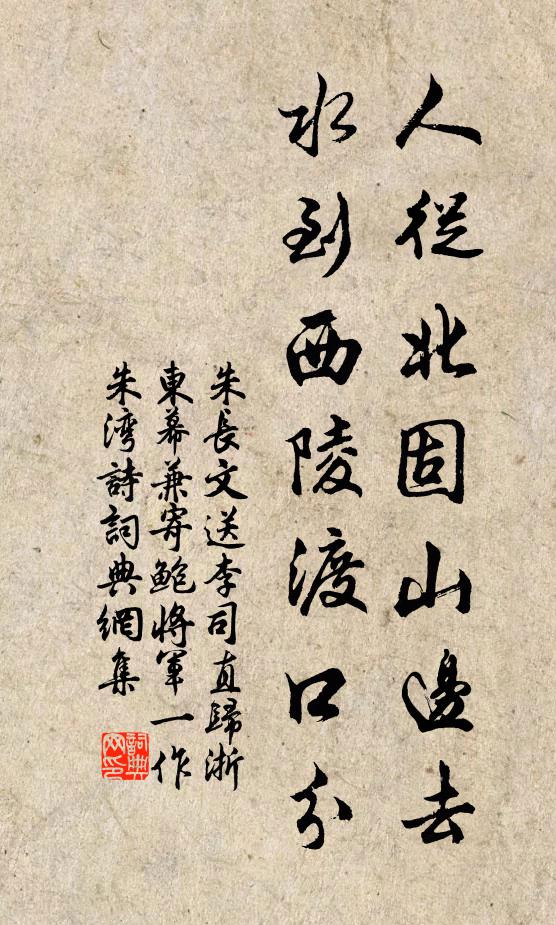 人從北固山邊去
水到西陵渡口分
朱長文送李司直歸浙
東幕兼寄鮑將軍一作
朱灣詩詞典網集
詞典
网印